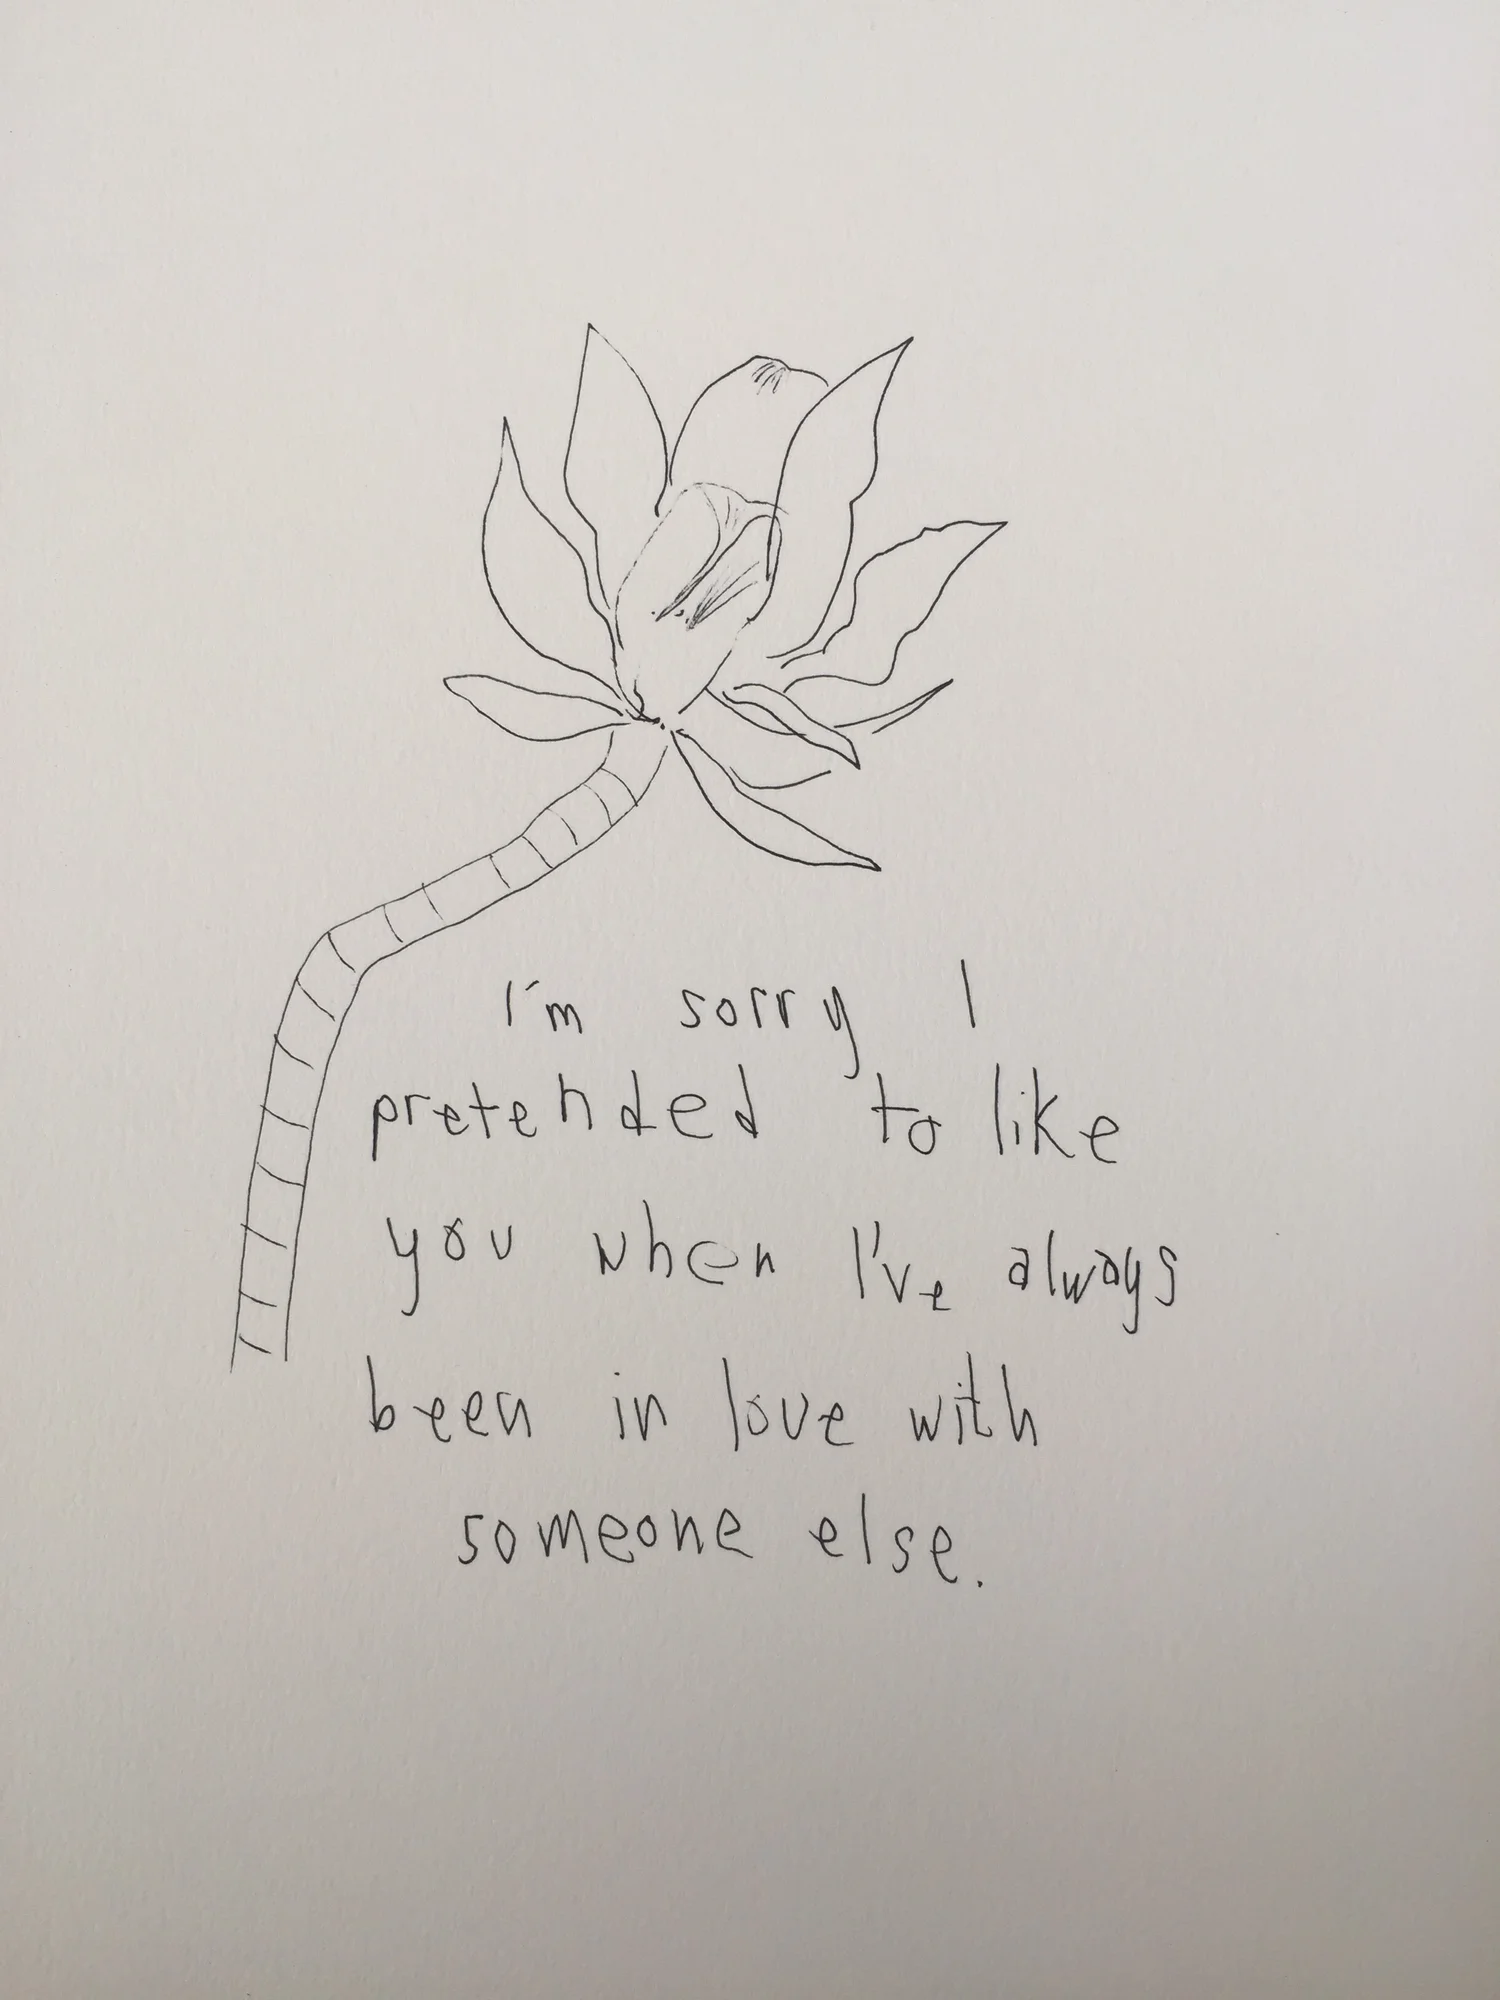 I'm sorry I
pretended to like
you when I've always
been in love with
someone else.